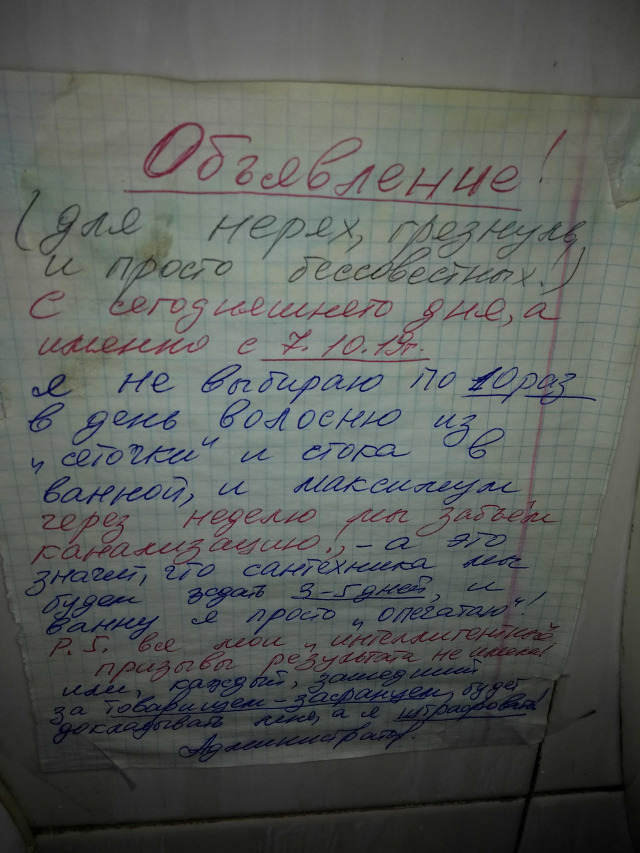 Объявление!
(для нерях, грезнуль,
и просто бессовестных.)
С сегодняшнего дня, а
именно с 7.10.19г.
я не выбираю по 10 раз
в день волосню из
"сеточки" и стока в
ванной, и максимум
через неделю мы забьём
канализацию., - а это
значит, что сантехника мы
будем ждать 3-5 дней, и
ванну я просто "опечатаю"!
P.S. все мои "интеллигентной
призывы результата не имели!
или, каждый, зашедший
за товарищем-засранцем, будет
докладывать мне, а я штрафовать!
Администратор.